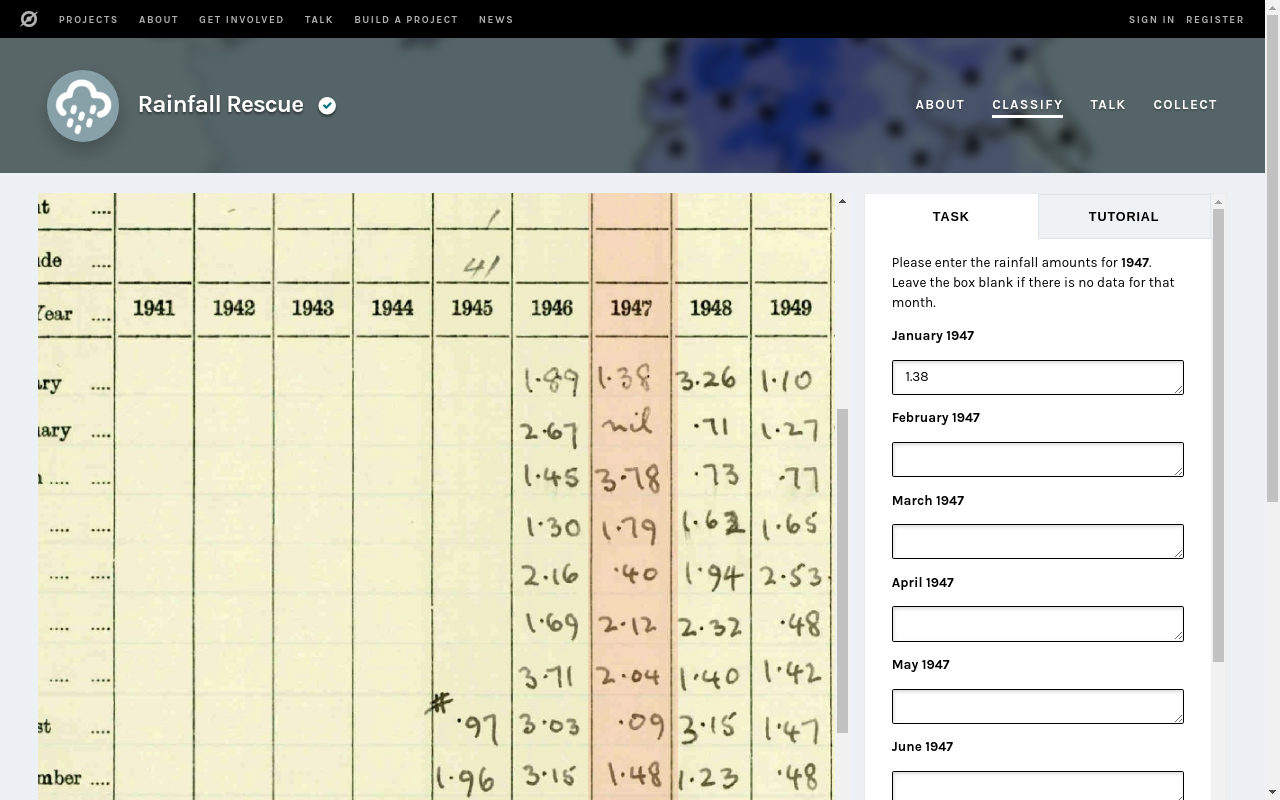 PROJECTS ABOUT GET INVOLVED TALK BUILD A PROJECT NEWS SIGN IN REGISTER
Rainfall Rescue ABOUT CLASSIFY TALK COLLECT
t ....
/
de ....
41
Year .... 1941 1942 1943 1944 1945 1946 1947 1948 1949
ry .... 1.89 1.38 3.26 1.10
ary .... 2.67 nil .71 1.27
.... .... 1.45 3.78 .73 .77
.... .... 1.30 1.79 1.63 1.65
.... .... 2.16 .40 1.94 2.53
.... .... 1.69 2.12 2.32 .48
.... .... 3.71 2.04 1.40 1.42
st .... # .97 3.03 .09 3.15 1.47
mber .... 1.96 3.15 1.48 1.23 .48
TASK TUTORIAL
Please enter the rainfall amounts for 1947.
Leave the box blank if there is no data for that
month.
January 1947
1.38
February 1947
March 1947
April 1947
May 1947
June 1947